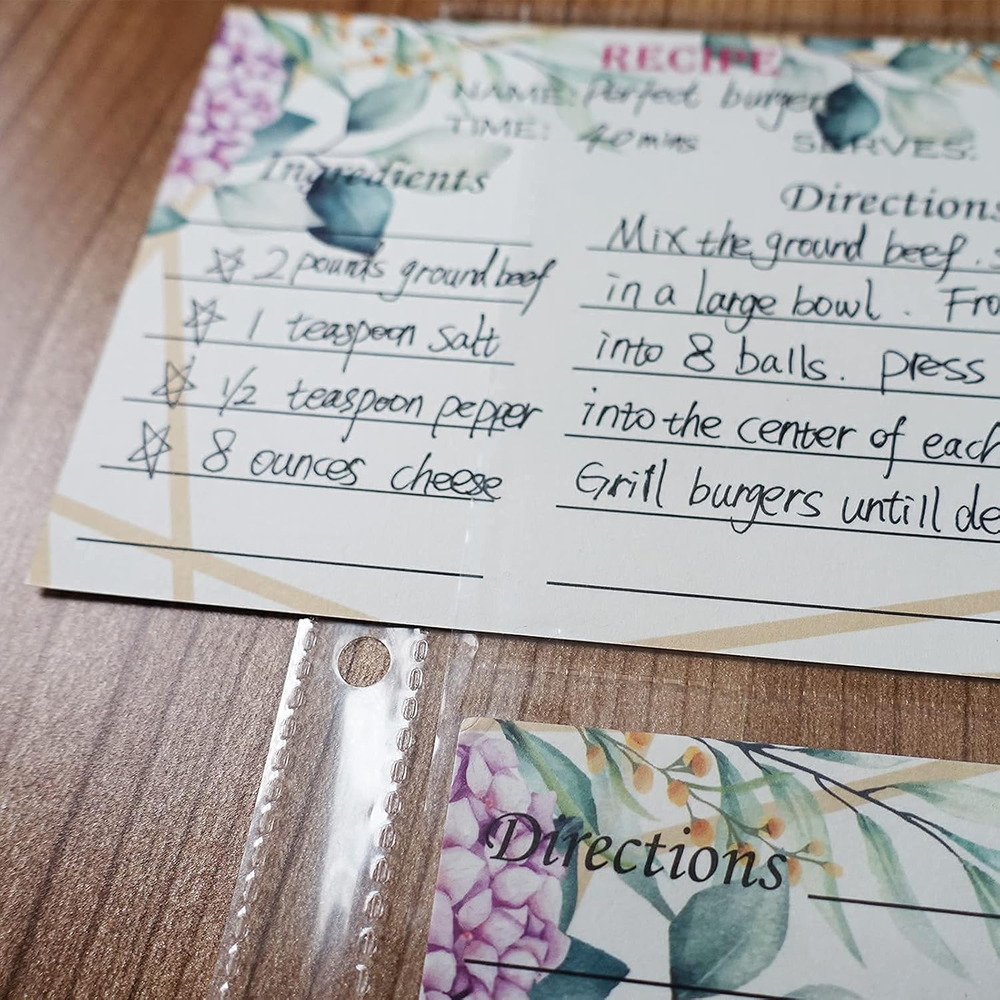 RECIPE
NAME: Perfect burger
TIME: 40 mins SERVES:
Ingredients
☆ 2 pounds ground beef
☆ 1 teaspoon salt
☆ 1/2 teaspoon pepper
☆ 8 ounces cheese
Directions
Mix the ground beef. s
in a large bowl. Fro
into 8 balls. press
into the center of each
Grill burgers untill de
Directions